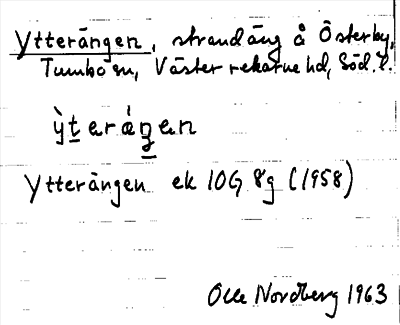 Ytterängen, strandäng å Österby,
Tumbo sn, Väster rekarne hd, Söd. l.
ỳteráŋen
Ytterängen ek 10G 8g (1958)
Olle Nordberg 1963